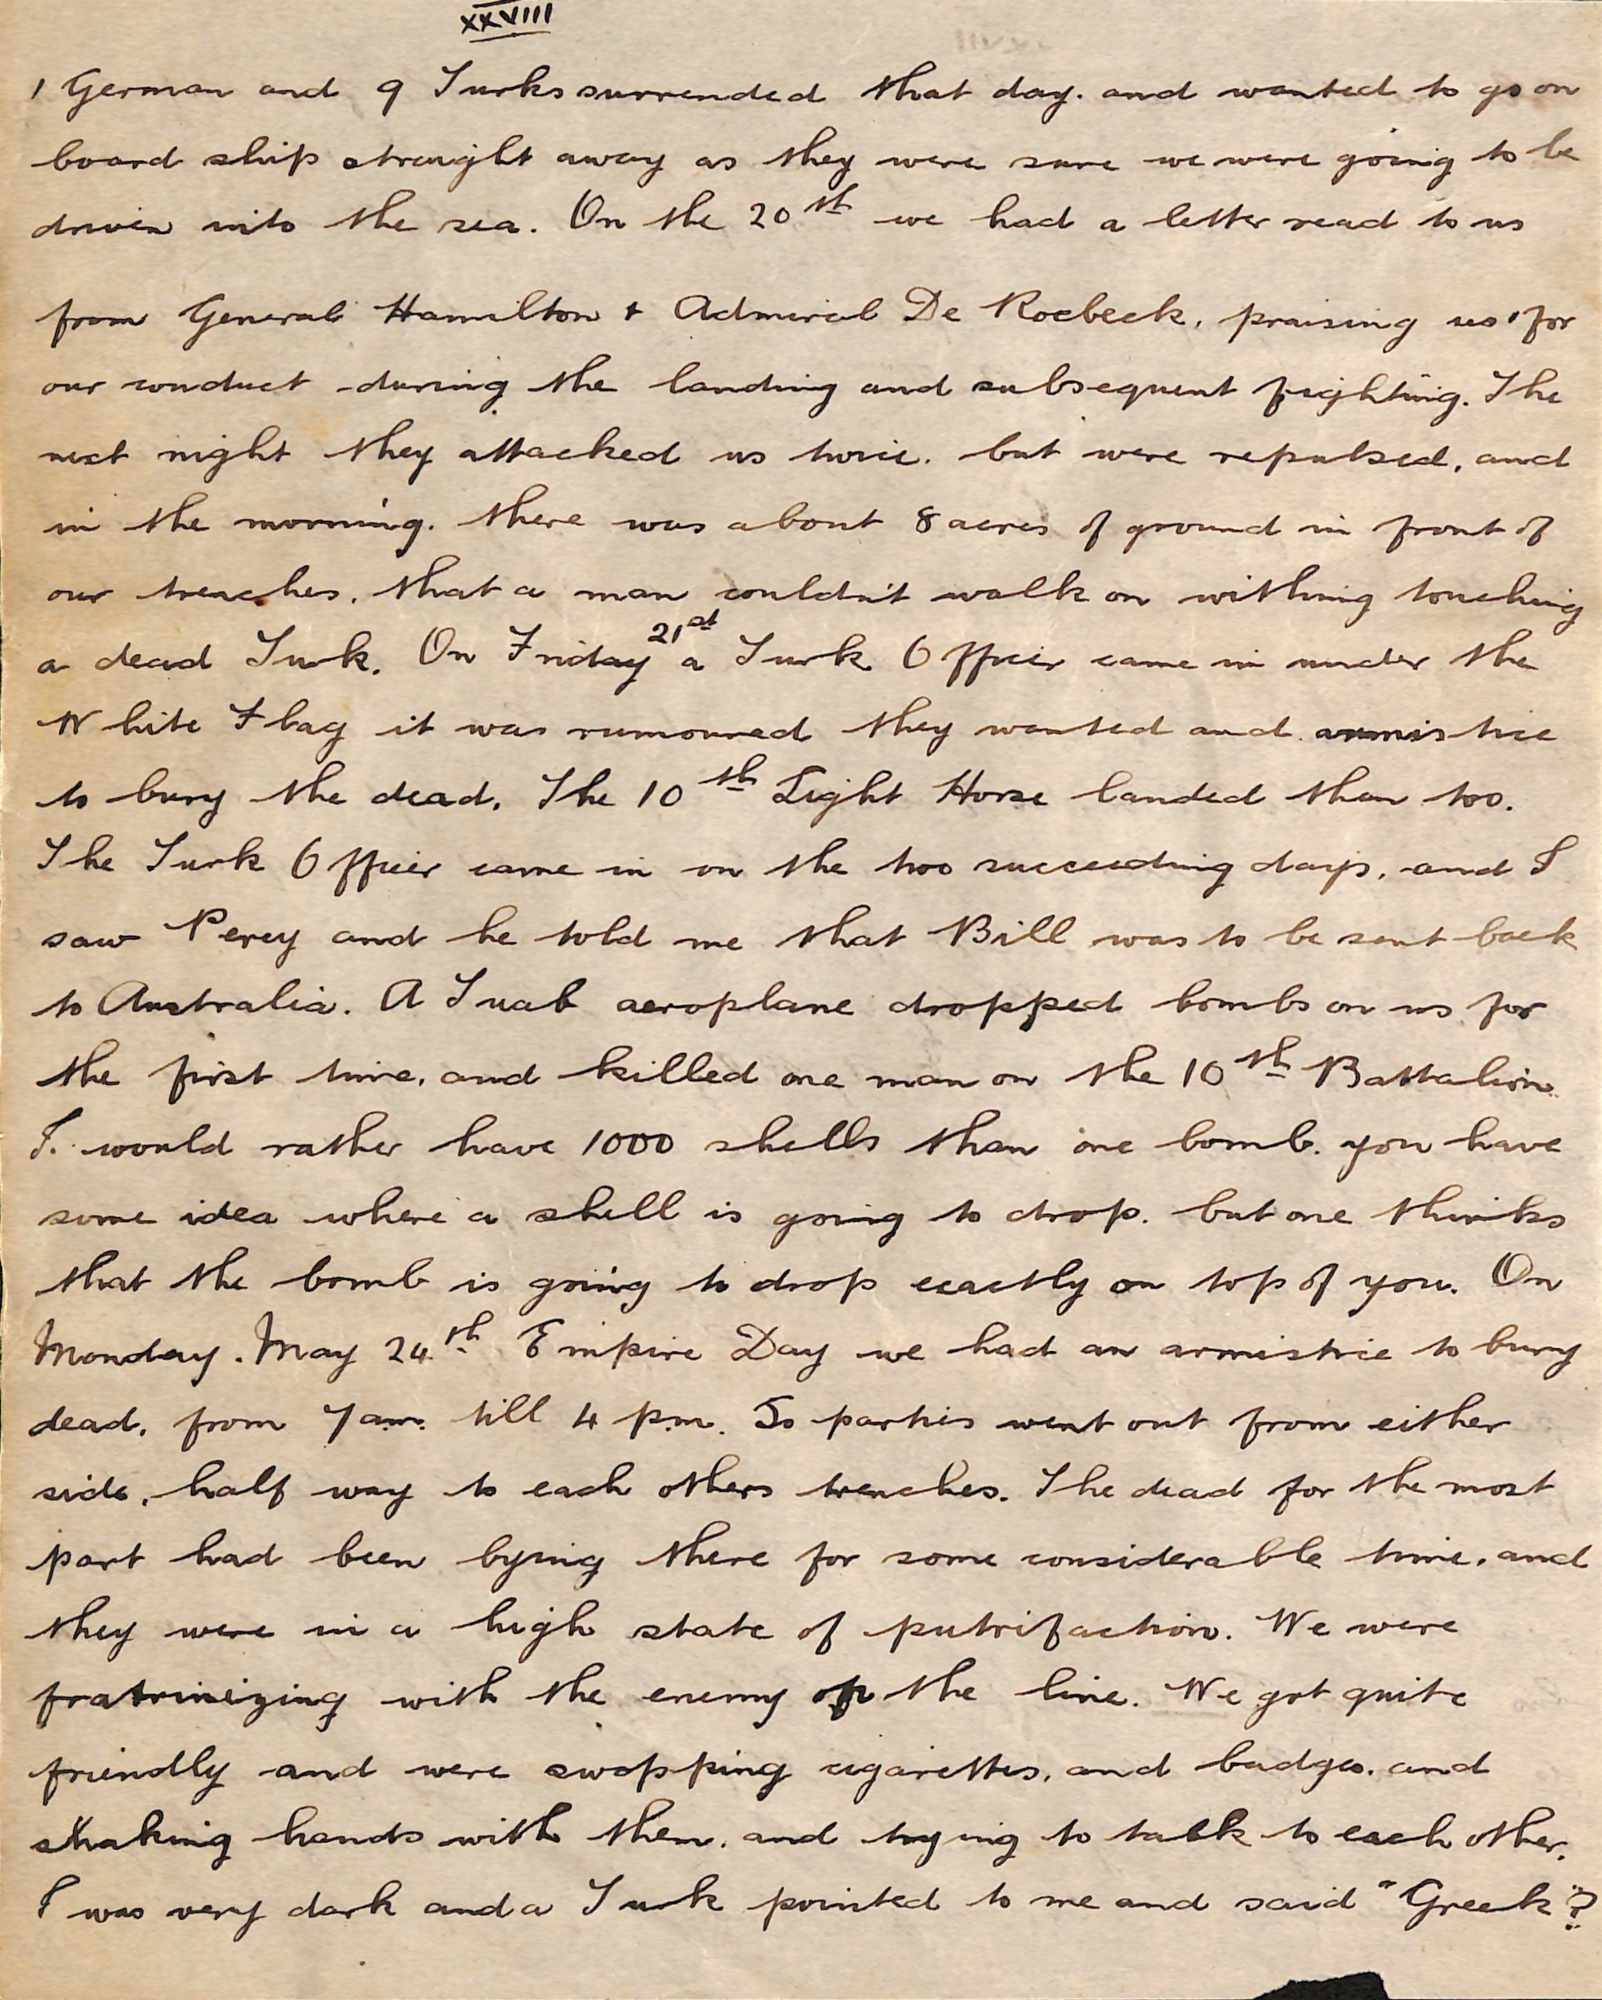 XXVIII
1 German and 9 Turks surrended that day. and wanted to go on
board ship straight away as they were sure we were going to be
driven into the sea. On the 20th we had a letter read to us
from General Hamilton & Admiral De Roebeck, praising us for
our conduct during the landing and subsequent fighting. The
next night they attacked us twice. but were repulsed, and
in the morning. there was about 8 acres of ground in front of
our trenches. that a man couldn't walk on withing touching
a dead Turk. On Friday 21st a Turk Officer came in under the
White Flag it was rumoured they wanted and armistice
to bury the dead. The 10th Light Horse landed then too.
The Turk Officer came in on the two succeeding days, and I
saw Percy and he told me that Bill was to be sent back
to Australia. A Tuab aeroplane dropped bombs on us for
the first time. and killed one man on the 10th Battalion.
I. would rather have 1000 shells than one bomb. you have
some idea where a shell is going to drop. but one thinks
that the bomb is going to drop exactly on top of you. On
Monday. May 24th Empire Day we had an armistice to bury
dead. from 7 am. till 4 p.m. So parties went out from either
side. half way to each others trenches. The dead for the most
part had been lying there for some considerable time. and
they were in a high state of putrifaction. We were
fratrinizing with the enemy on the line. We got quite
friendly and were swopping cigarettes. and badges. and
shaking hands with them. and trying to talk to each other.
I was very dark and a Turk pointed to me and said "Greek?